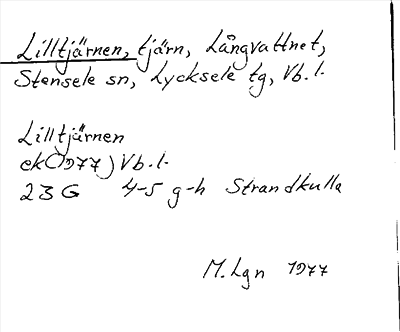 Lilltjärnen, tjärn, Långvattnet,
Stensele sn, Lycksele tg, Vb. l.
Lilltjärnen
ek(1977) Vb. l.
23 G 4-5 g-h Strandkulla
M. Lgn 1977